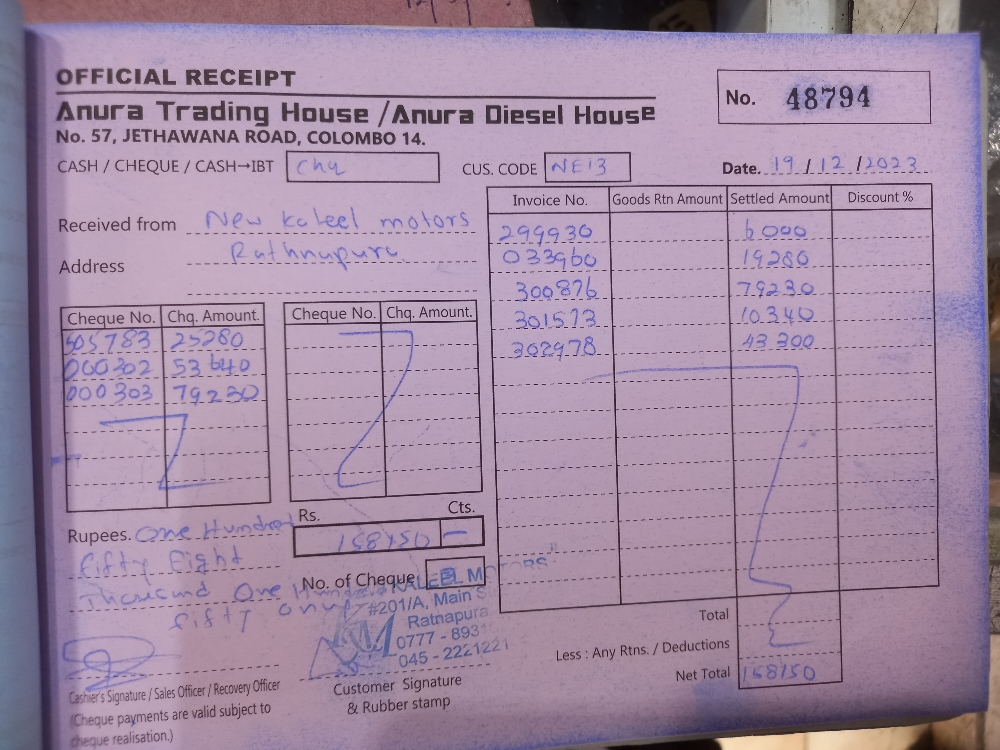 OFFICIAL RECEIPT
Anura Trading House / Anura Diesel House
No. 57, JETHAWANA ROAD, COLOMBO 14.
No. 48794
CASH / CHEQUE / CASH→IBT Chq
CUS. CODE NE13
Date. 19 / 12 / 2023
Received from New kaleel motors
Address Rathnapura
Invoice No. Goods Rtn Amount Settled Amount Discount %
299930 6000
033960 19280
300876 79230
301573 10340
302978 43300
Cheque No. Chq. Amount.
505783 25280
000302 53640
000303 79230
Cheque No. Chq. Amount.
Rupees. One Hundred
fifty Eight
Thousand One Hundred
fifty only
Rs. Cts.
158150 —
No. of Cheque
KALEEL M
#201/A, Main S
Ratnapura
0777 - 893
045 - 2221221
Cashier's Signature / Sales Officer / Recovery Officer
(Cheque payments are valid subject to
cheque realisation.)
Customer Signature
& Rubber stamp
Total
Less : Any Rtns. / Deductions
Net Total 158150